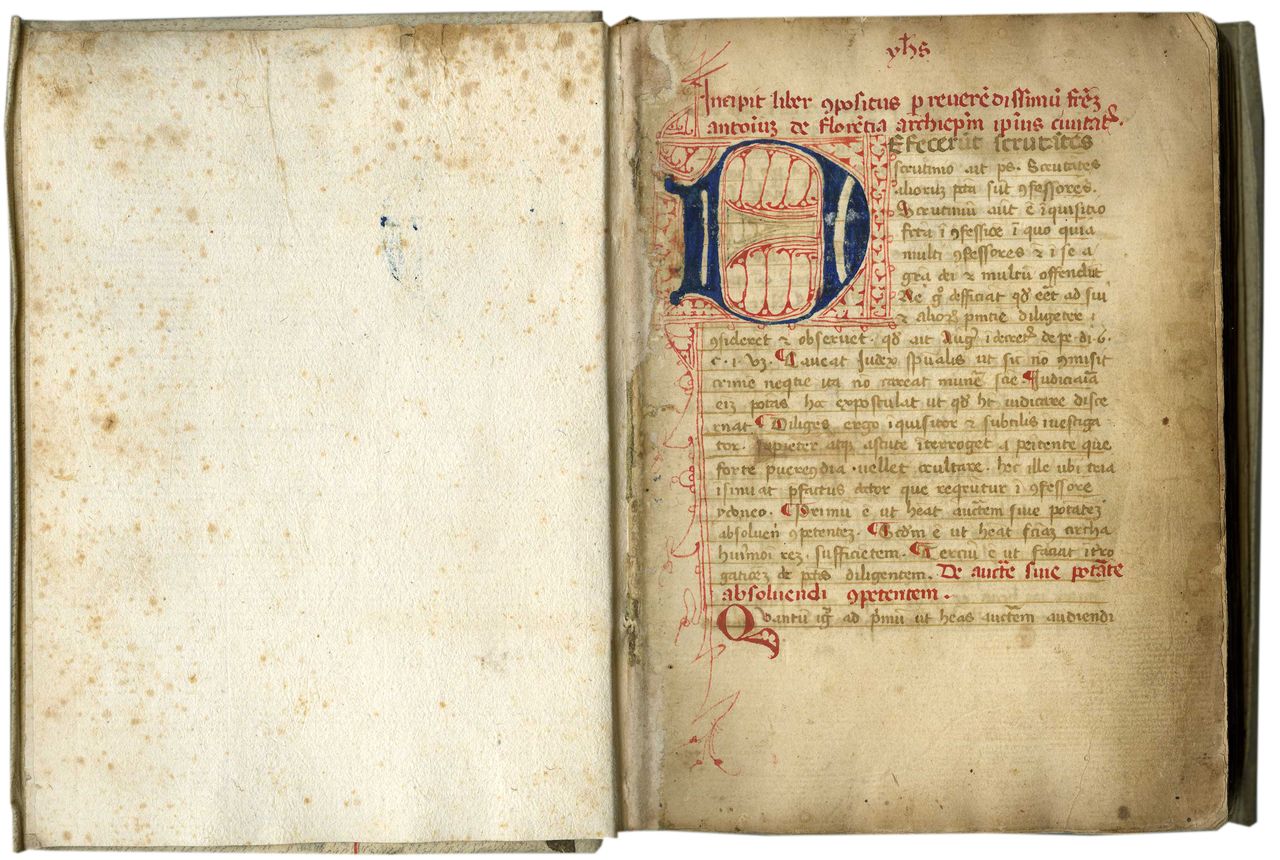 yhs
Incipit liber ꝯpositus p reverēdissimū frēz
antoniuz de florētia archiepm ipius civitat
DEfecerūt scrutātes
scrutinio ait ps. Scrutātes
aliorūz pctā sūt ꝯfessores.
Scrutiniū aūt ē īquisitio
fcta ī ꝯfessiōe ī quo quia
multi ꝯfessores ⁊ ī se a
gra dei ⁊ multū offendūt
Ne gͦ defficiat qđ eēt ad sui
⁊ alioꝝ pnitie diligēter
ꝯsideret ⁊ observet. qđ ait Augꝯ ī decret de pe. di. 6.
c. i. vꝫ. ¶ Caveat Judex spualis ut sic nō ꝯmisit
crimē neqtie ita nō careat munē sciē. ¶ Judiciaīa
eīz potās hoc expostulat ut qđ ht iudicare disce
rnat ¶ Diligēs ergo īquisitor ⁊ subtilis īnvestiga
tor. sapiēter atqꝫ astute īterroget a peītente que
forte pverecūdia vellet ocultare. hec ille ubi tria
īsinuat pfatus doctor que reqrūtur ī ꝯfessore
ydoneo. ¶ Primū ē ut heat auctem sive potatez
absolvēn ꝯpetentez. ¶ Scdm ē ut heat sciāz circha
huīmoi rez. sufficiētem. ¶ Terciū ē ut faciat ītro
gatioēz de pctīs diligentem. De aucte sive potāte
absolvendi ꝯpetentem.
Quantū igͬ ad pmū ut heas auctem audiendi